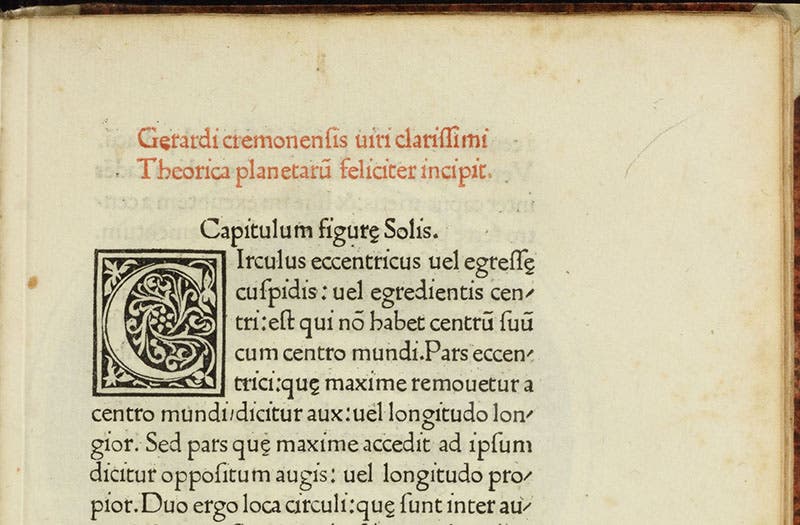 Gerardi cremonensis uiri clariſſimi
Theorica planetarū feliciter incipit.
Capitulum figurę Solis.
CIrculus eccentricus uel egreſſę
cuſpidis: uel egredientis cen⸗
tri:eſt qui nō habet centrū ſuū
cum centro mundi.Pars eccen⸗
trici:quę maxime remouetur a
centro mundi/dicitur aux:uel longitudo lon⸗
gior. Sed pars quę maxime accedit ad ipſum
dicitur oppoſitum augis: uel longitudo pro⸗
pior.Duo ergo loca circuli:quę ſunt inter au⸗